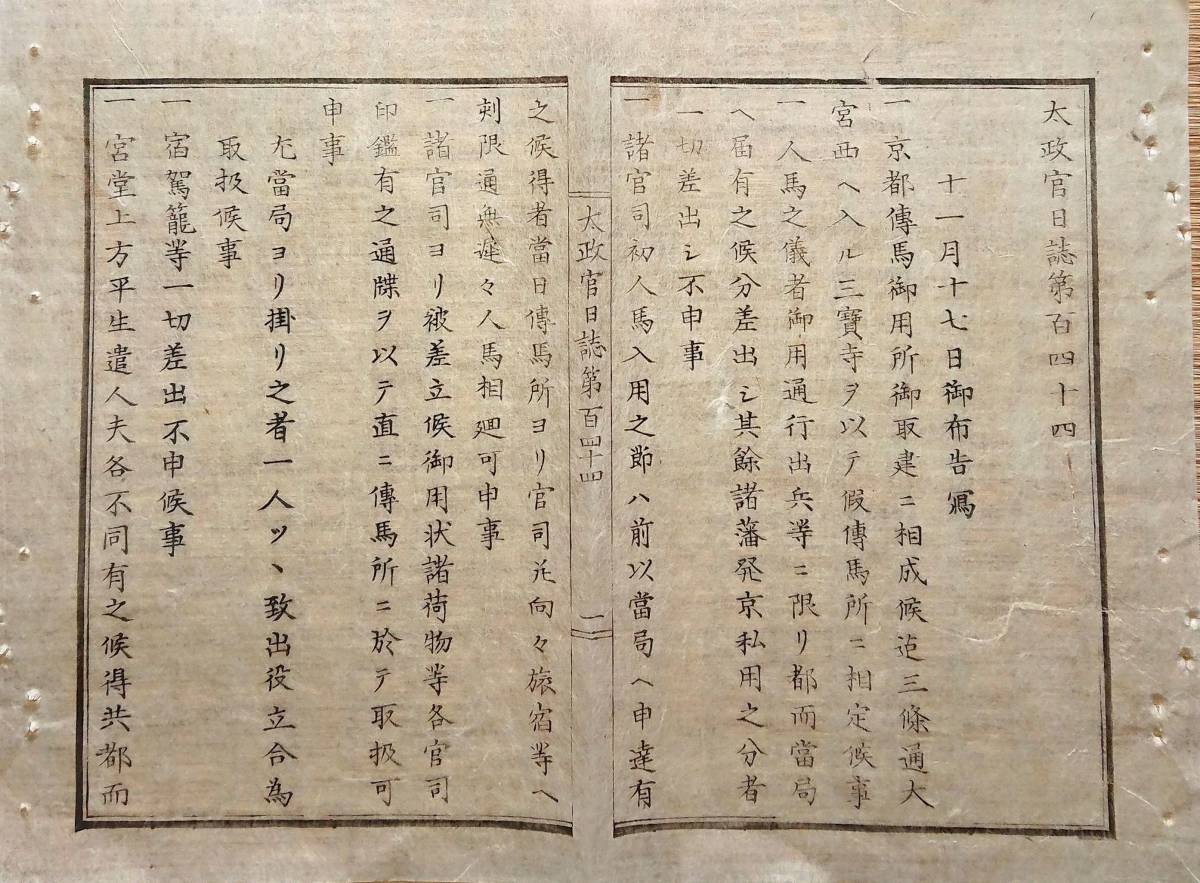 太政官日誌第百四十四
十一月十七日御布告寫
一京都傳馬御用所御取建ニ相成候迄三條通大
宮西ヘ入ル三寶寺ヲ以テ假傳馬所ニ相定候事
一人馬之儀者御用通行出兵等ニ限リ都而當局
ヘ届有之候分差出シ其餘諸藩発京私用之分者
一切差出シ不申事
一諸官司初人馬入用之節ハ前以當局ヘ申達有
太政官日誌第百四十四
二
之候得者當日傳馬所ヨリ官司並向々旅宿等ヘ
刻限通無遅々人馬相廻可申事
一諸官司ヨリ被差立候御用状諸荷物等各官司
印鑑有之通牒ヲ以テ直ニ傳馬所ニ於テ取扱可
申事
尤當局ヨリ掛リ之者一人ツヽ致出役立合為
取扱候事
一宿駕籠等一切差出不申候事
一宮堂上方平生遣人夫各不同有之候得共都而